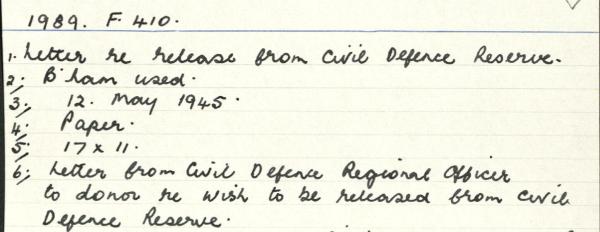 1989. F. 410.
1. Letter re release from Civil Defence Reserve.
2. B'ham used.
3. 12. May 1945.
4. Paper.
5. 17 x 11.
6. Letter from Civil Defence Regional Officer
to donor re wish to be released from Civil
Defence Reserve.